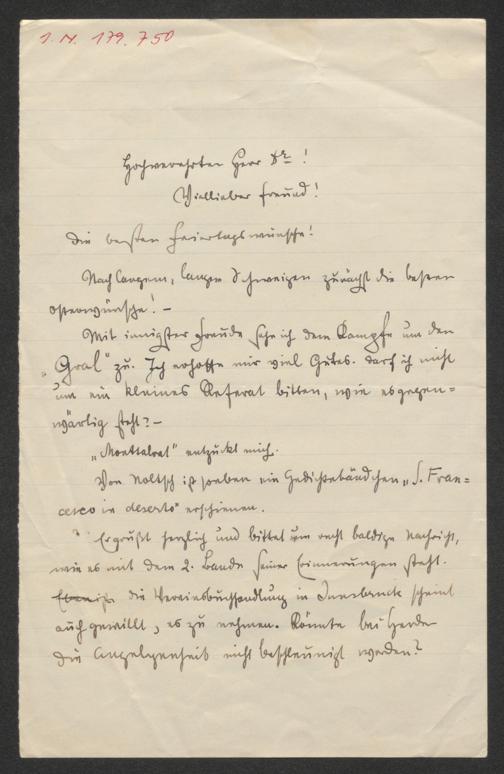 I. N. 179.750
Hochverehrter Herr Dr !
Viellieber Freund!
Die besten Feiertagswünsche!
Nach langem, langem Schweigen zunächst die besten
Osterwünsche! –
Mit innigster Freude sehe ich dem Kampfe um den
„Gral" zu. Ich erhoffe mir viel Gutes. Darf ich nicht
um ein kleines Referat bitten, wie es gegen=
wärtig steht? –
„Montsalvat" entzückt mich.
Von Noltsch ist soeben ein Gedichtbändchen „S. Fran=
cesco in deserto" erschienen.
Er grüßt herzlich und bittet um recht baldige Nachricht,
wie es mit dem 2. Bande seiner Erinnerungen steht.
die Vereinsbuchhandlung in Innsbruck scheint
auch gewillt, es zu nehmen. Könnte bei Herder
die Angelegenheit nicht beschleunigt werden?